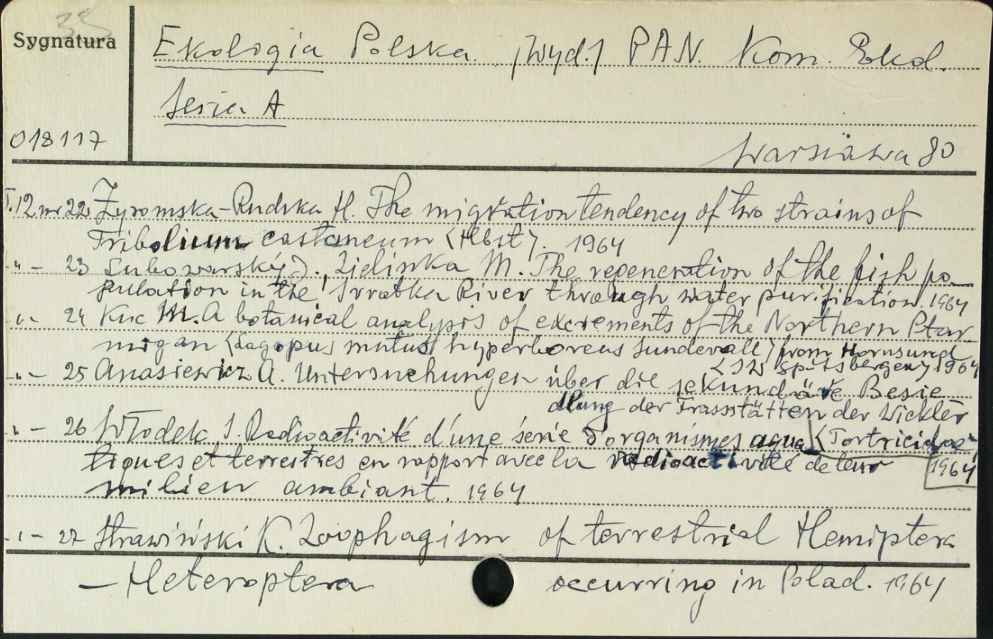 35
Sygnatura
Ekologia Polska /Wyd./ PAN. Kom. Ekol.
Seria A
018117
Warszawa 80
T.12 nr 22 Żyromska-Rudska H. The migration tendency of two strains of
Tribolium castaneum (Hbst). 1964
-"- 23 Lubowarský J., Zielinka M. The regeneration of the fish po
pulation in the Svratka River through water purification. 1964
-"- 24 Kuc M. A botanical analysis of excrements of the Northern Ptar
migan (Lagopus mutus hyperboreus Sundevall) from Hornsund
(SW Spitsbergen) 1964
-"- 25 Anasiewicz A. Untersuchungen über die sekundäre Besie
dlung der Frassstätten der Wickler
-"- 26 Włodek J. Radioactivité d'une serie d'organismes aqua (Tortricidae)
tiques et terrestres en rapport avec la radioactivité de leur 1964
milieu ambiant. 1964
-"- 27 Strawiński K. Zoophagism of terrestrial Hemiptera
- Heteroptera occurring in Polad. 1964